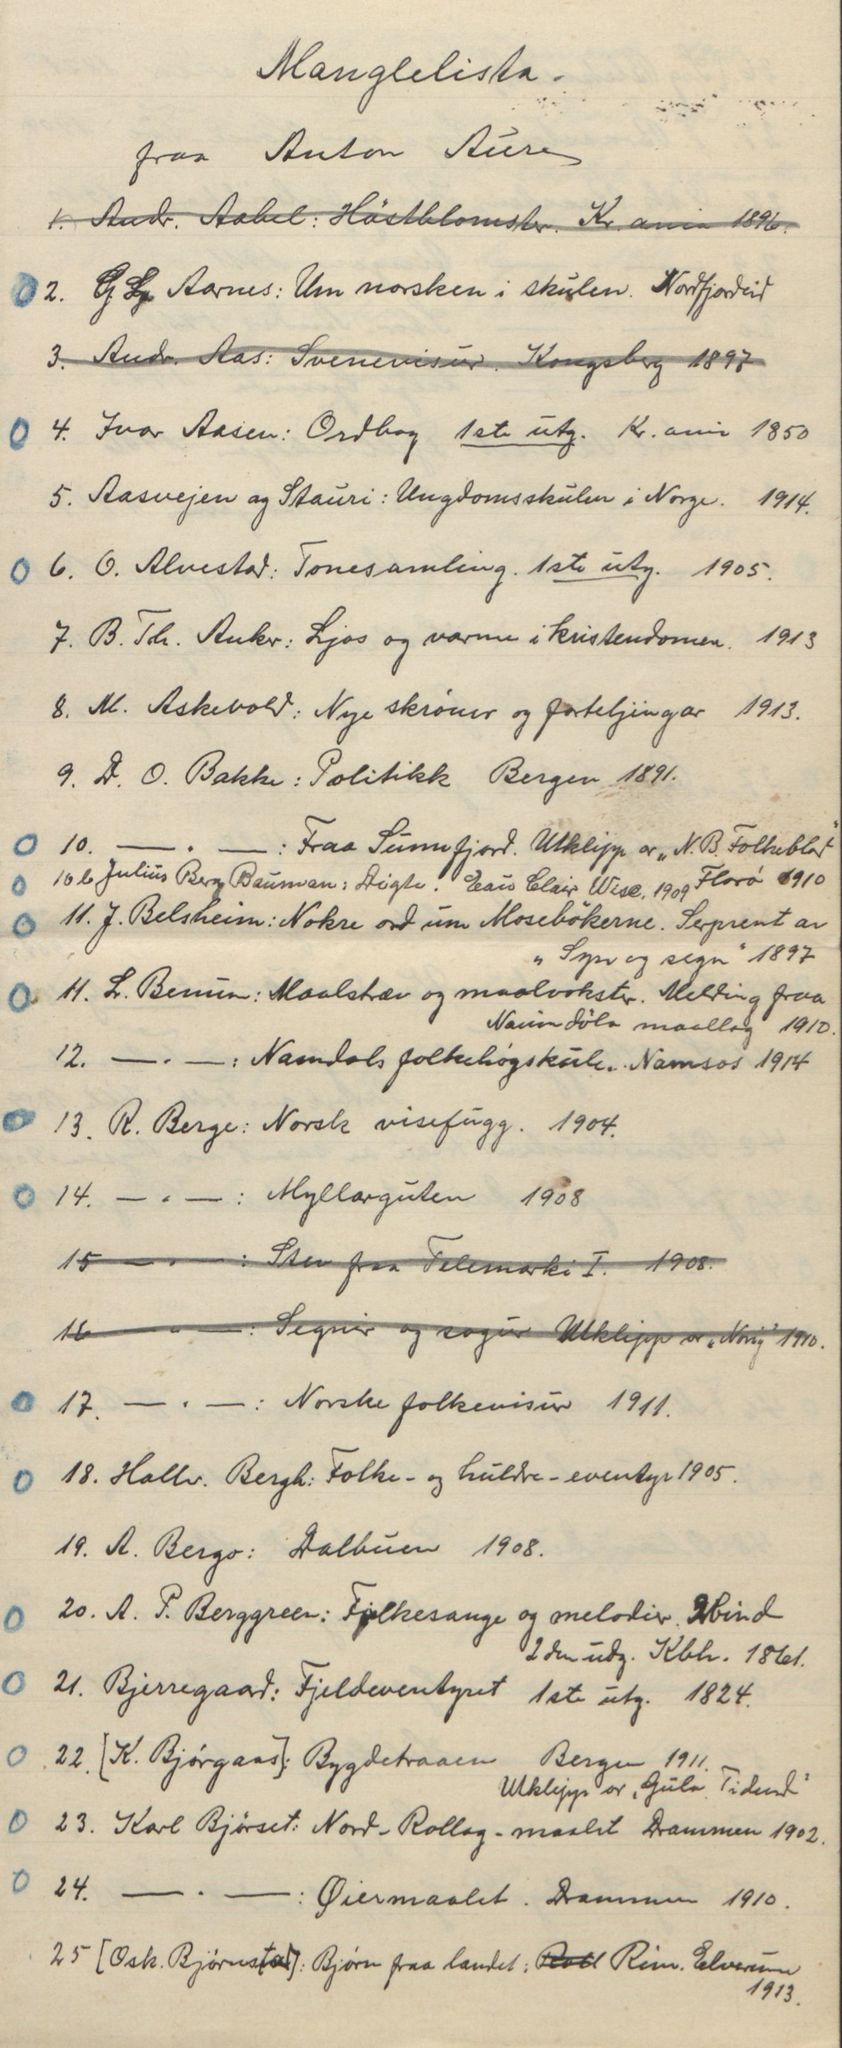 Manglelista.
fraa Anton Aure
1. Andr. Aabel: Höstblomster. Kr.ania 1896.
2. Aarnes: Um norsken i skulen. Nordfjordeid
3. Andr. Aas: Svenevisur. Kongsberg 1897
4. Ivar Aasen: Ordbog 1ste utg. Kr.ania 1850
5. Aasvejen og Stauri: Ungdomsskulen i Norge. 1914.
6. O. Alvestad: Tonesamling. 1ste utg. 1905.
7. B. Th. Anker: Ljos og varme i kristendomen. 1913
8. M. Askevold: Nye skrönur og forteljingar 1913.
9. D. O. Bakke: Politikk Bergen 1891.
10. — . — : Fraa Sunnfjord. Utklipp or „N. B. Folkeblad"
Florö 1910
10 b Julius Berg Bauman: Digte. Eau Clair Wisc. 1909
11. J. Belsheim: Nokre ord um Mosebökerne. Serprent av
„Syn og segn" 1897
11. L. Benum: Maalstræv og maalvokster. Melding fraa
Naumdöla maallag 1910.
12. — . — : Namdals folkehögskule. Namsos 1914
13. R. Berge: Norsk visefugg. 1904.
14. — . — : Myllarguten 1908
15 — . — : Stev fraa Telemarki I. 1908.
16 — . — : Segnir og sogur Utklipp or „Norig" 1910.
17. — . — : Norske folkevisur 1911.
18. Hallv. Bergh: Folke- og huldre-eventyr 1905.
19. A. Bergo: Dalbuen 1908.
20. A. P. Berggreen: Folkesange og melodier. 2 bind
2den udg. Kbh. 1861.
21. Bjerregaard: Fjeldeventyret 1ste utg. 1824.
22. [K. Bjørgaas]: Bygdetraaen Bergen 1911.
Utklipp or „Gula Tidend"
23. Karl Bjørset: Nord-Rollag-maalet Drammen 1902.
24. — . — : Øiermaalet. Drammen 1910.
25 [Osk. Bjørnstad]: Bjørn fraa landet: Rim. Elverum
1913.